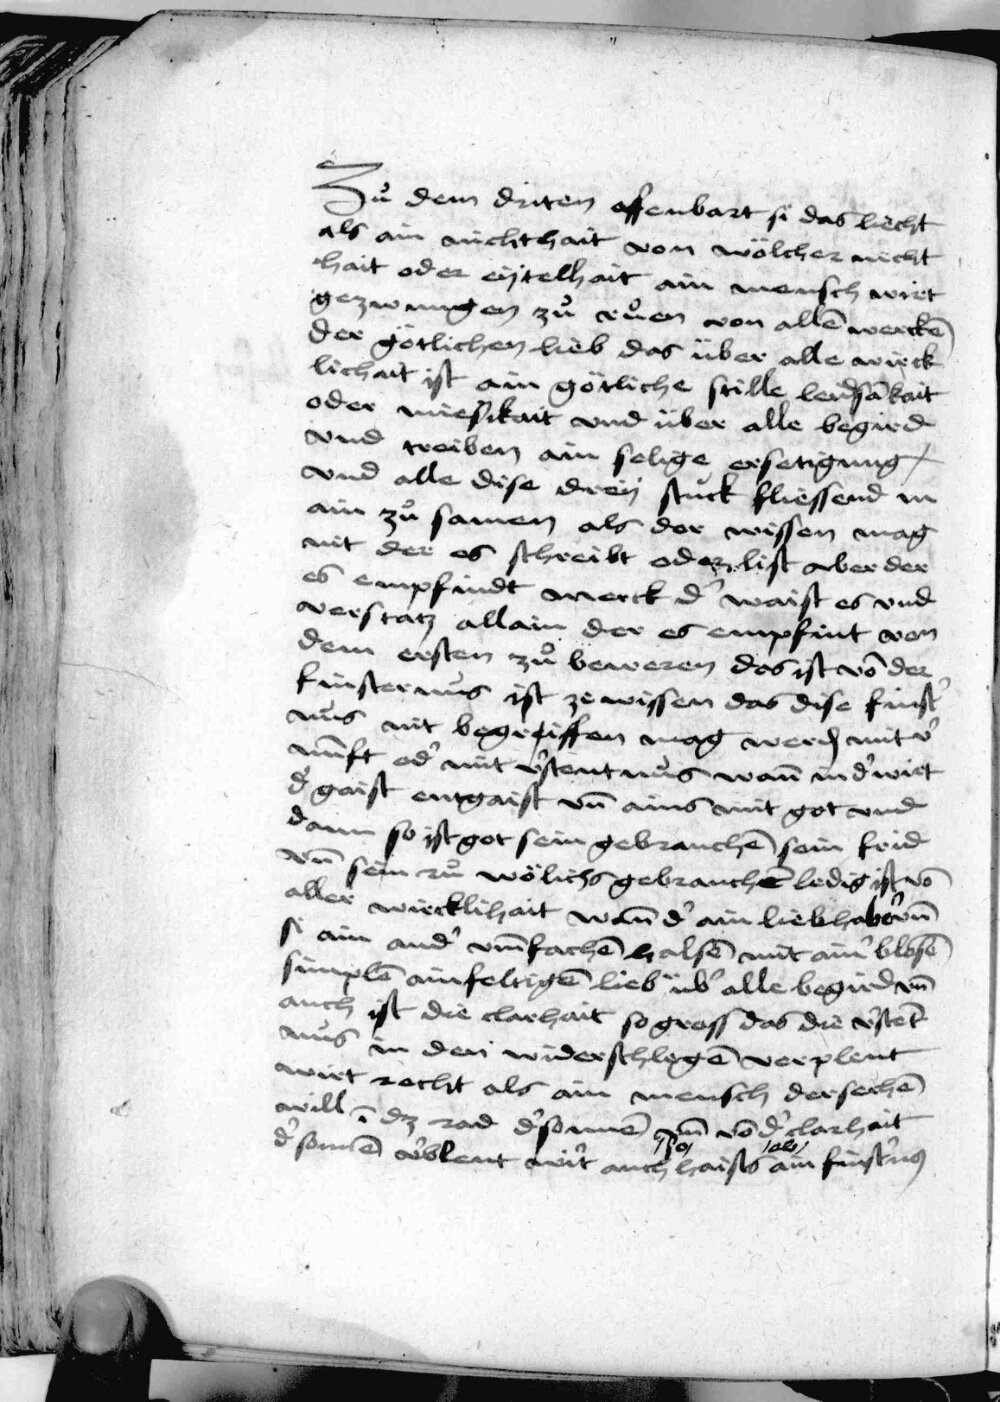 Zů dem driten offenbart si das liecht
als ain nichthait von wölcher nicht
hait oder eijtelhait ain mensch wirt
gezwungen zů růen von allē werckē
der götlichen lieb das über alle wirck
lichait ist ain götliche stille leidsākait
oder miesikait vnd über alle begird
vnd treiben ain selige ersetigung
vnd alle dise dreij stuck fliessend in
ain zů samen als der wissen mag
nit der es schreibt oder list aber der
es empfindt merck d' waist es vnd
verstatz allain der es empfint von
dem ersten zů beweren das ist vō der
finsternus ist ze wissen das dise finst'
nus nit begriffen mag werdē mit v'
nūft od' mit v'stentnus wañ in d' wirt
d' gaist entgaist vñ ains mit got vnd
dann so ist got sein gebrauchē sein frid
vñ sein rů wölichs gebrauchē ledig ist vō
aller wircklihait wañ d' ain liebhaber vñ
si ain and' vmfachē halsē mit ain' blosē
simplē ainfeltigē lieb üb' alle begird vñ
auch ist die clarhait so gross das die v'stēt
nus in den widerschlegē verplent
wirt recht als ain mensch der sechē
will ī dz rad d' sonnē vñ vō d' clarhait
d' sonnē v'blent wirt auch /so/ haists /als/ ain finst'nus